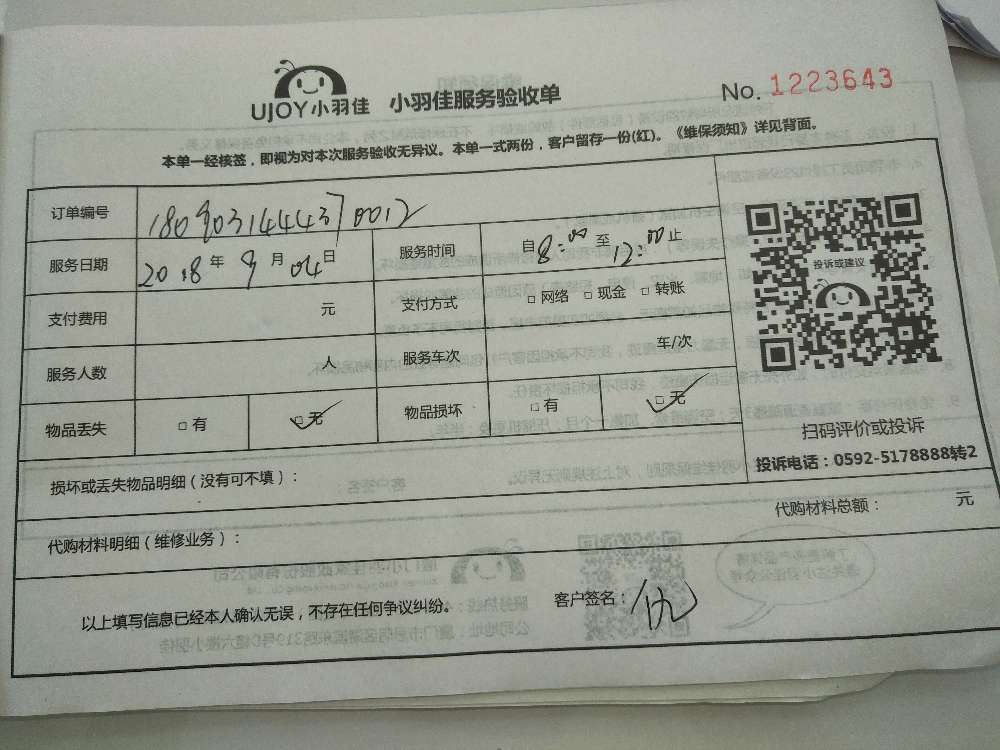 UJOY小羽佳 小羽佳服务验收单 No. 1223643
本单一经核签，即视为对本次服务验收无异议。本单一式两份，客户留存一份(红)。《维保须知》详见背面。
订单编号 180903144437 0012
服务日期 2018年9月04日 服务时间 自8:00至12:00止
支付费用 元 支付方式 □网络 □现金 □转账
服务人数 人 服务车次 车/次
物品丢失 □有 □无 物品损坏 □有 □无
投诉或建议
扫码评价或投诉
投诉电话：0592-5178888转2
损坏或丢失物品明细（没有可不填）：
代购材料明细（维修业务）： 代购材料总额： 元
以上填写信息已经本人确认无误，不存在任何争议纠纷。 客户签名：